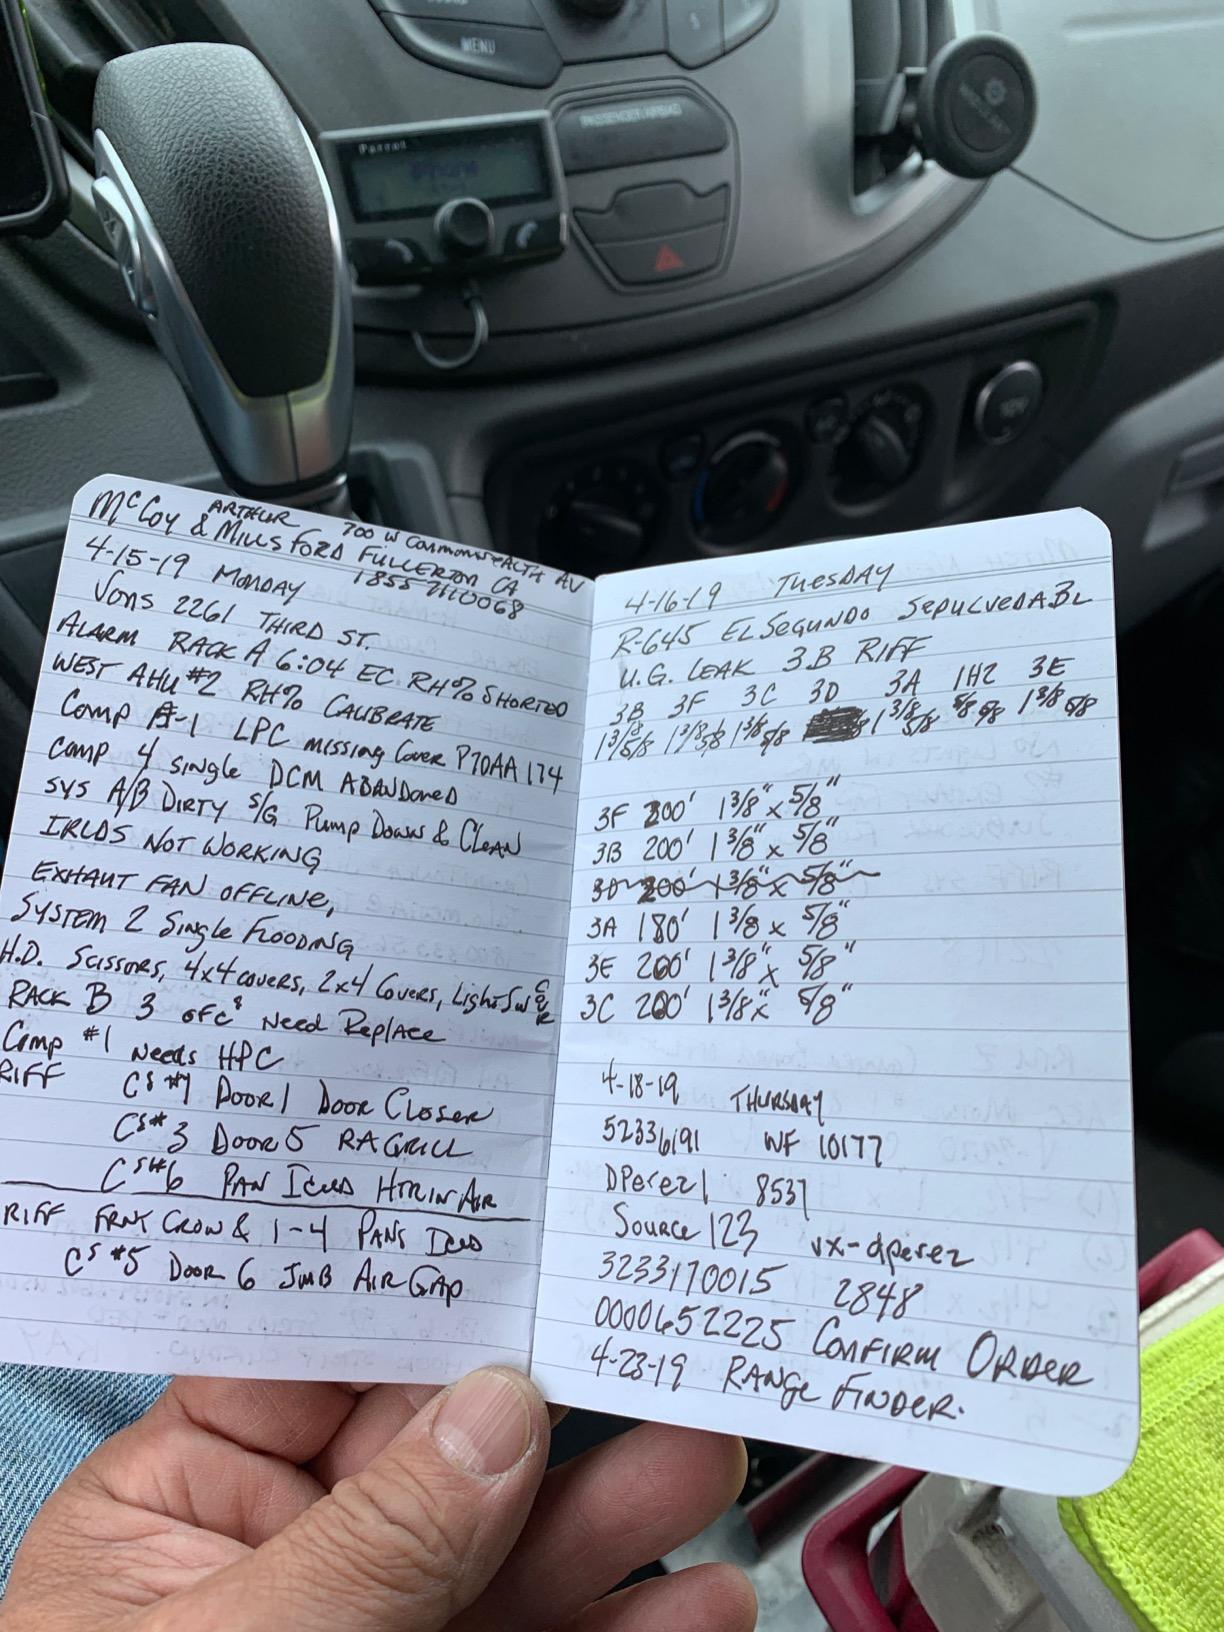 MENU
Parrot
PASSENGER AIRBAG
ARTHUR 700 W COMMONWEALTH AV
McCoy & Mills FORD FULLERTON CA
1855
4-15-19 MONDAY
Vons 2261 THIRD ST.
ALARM RACK A 6:04 EC RH% SHORTED
WEST AHU #2 RH% CALIBRATE
Comp A-1 LPC missing Cover P70AA 174
Comp 4 single DCM ABANDONED
SYS A/B DIRTY S/G Pump Down & Clean
IRLDS NOT WORKING
EXHAUT FAN OFFLINE,
SYSTEM 2 Single FLOODING
H.D. Scissors, 4x4 covers, 2x4 Covers, Light Sw COVER
RACK B 3 OFC's Need Replace
Comp #1 Needs HPC
RIFF CS #7 Door 1 Door Closer
CS #3 Door 5 RA GRILL
CS #6 PAN Iced HTR IN AIR
RIFF FRNT CROW & 1-4 PANS Iced
CS #5 Door 6 JMB AIR GAP
4-16-19 TUESDAY
R-645 EL Segundo SepulvedA BL
U.G. LEAK 3B RIFF
3B 3F 3C 3D 3A 1H2 3E
1 3/8 5/8 1 3/8 5/8 1 3/8 5/8 1 3/8 5/8 5/8 1 3/8 5/8
3F 200' 1 3/8" x 5/8"
3B 200' 1 3/8" x 5/8"
3D 200' 1 3/8" x 5/8"
3A 180' 1 3/8 x 5/8"
3E 200' 1 3/8" x 5/8"
3C 200' 1 3/8" x 5/8"
4-18-19 THURSDAY
52336191 WF 10177
DPerez1 8537
Source 123 vx-dperez
3233170015 2848
0000652225 Confirm Order
4-23-19 RANGE FINDER.